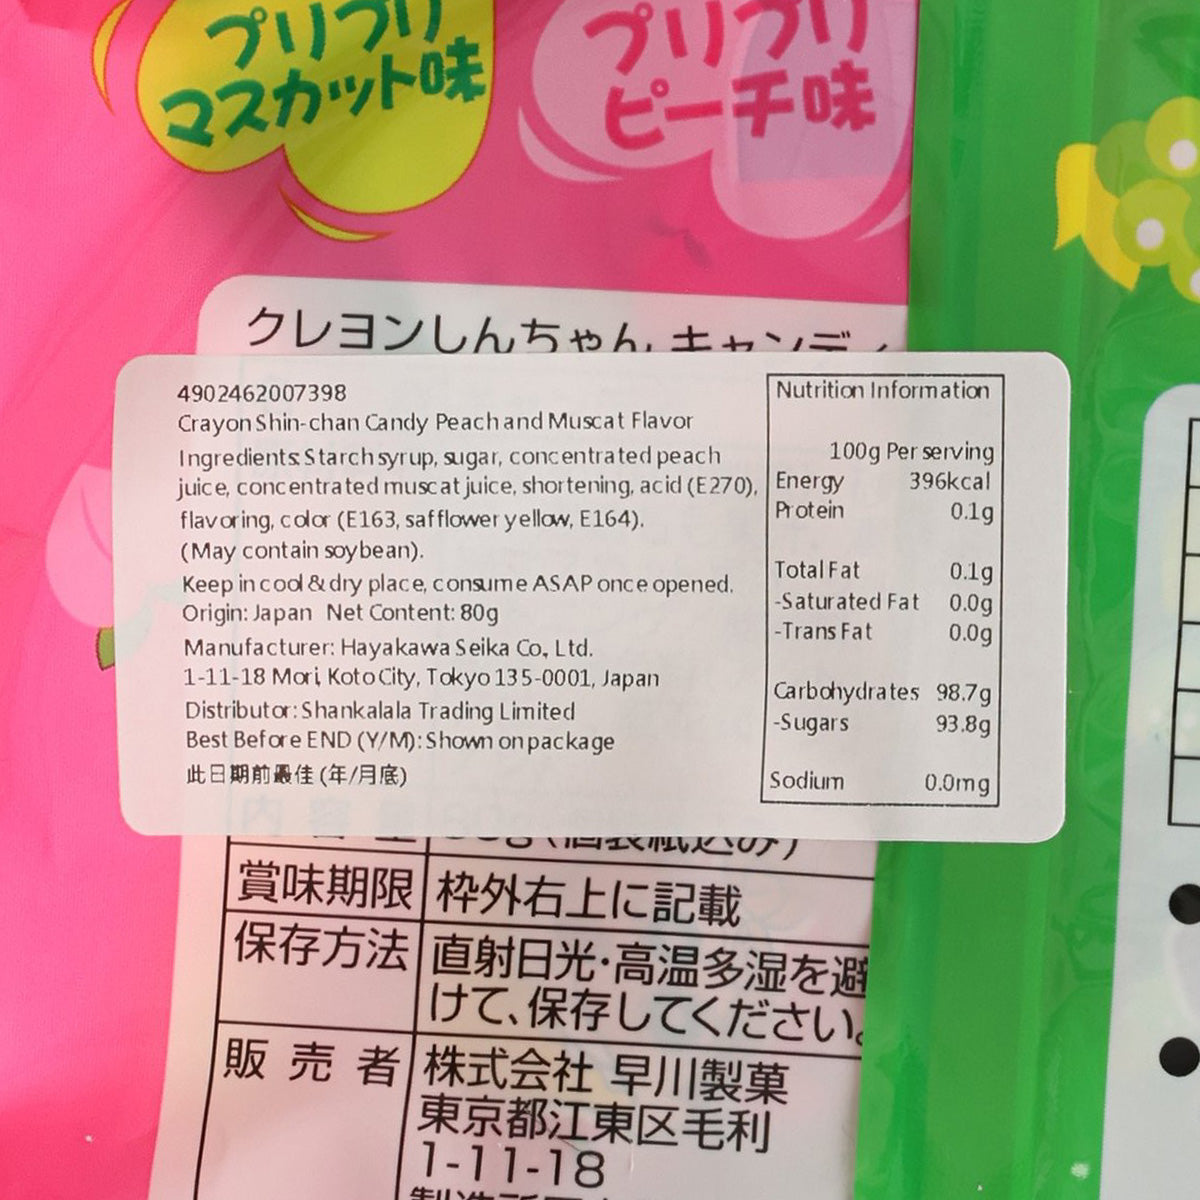 プリプリ
マスカット味
プリプリ
ピーチ味
クレヨンしんちゃん キャンディ
4902462007398
Crayon Shin-chan Candy Peach and Muscat Flavor
Ingredients: Starch syrup, sugar, concentrated peach
juice, concentrated muscat juice, shortening, acid (E270),
flavoring, color (E163, safflower yellow, E164).
(May contain soybean).
Keep in cool & dry place, consume ASAP once opened.
Origin: Japan Net Content: 80g
Manufacturer: Hayakawa Seika Co., Ltd.
1-11-18 Mori, Koto City, Tokyo 135-0001, Japan
Distributor: Shankalala Trading Limited
Best Before END (Y/M): Shown on package
此日期前最佳 (年/月底)
Nutrition Information
100g Per serving
Energy 396kcal
Protein 0.1g
Total Fat 0.1g
-Saturated Fat 0.0g
-Trans Fat 0.0g
Carbohydrates 98.7g
-Sugars 93.8g
Sodium 0.0mg
内容量 80g (個装紙込み)
賞味期限 枠外右上に記載
保存方法 直射日光・高温多湿を避
けて、保存してください。
販売者 株式会社 早川製菓
東京都江東区毛利
1-11-18